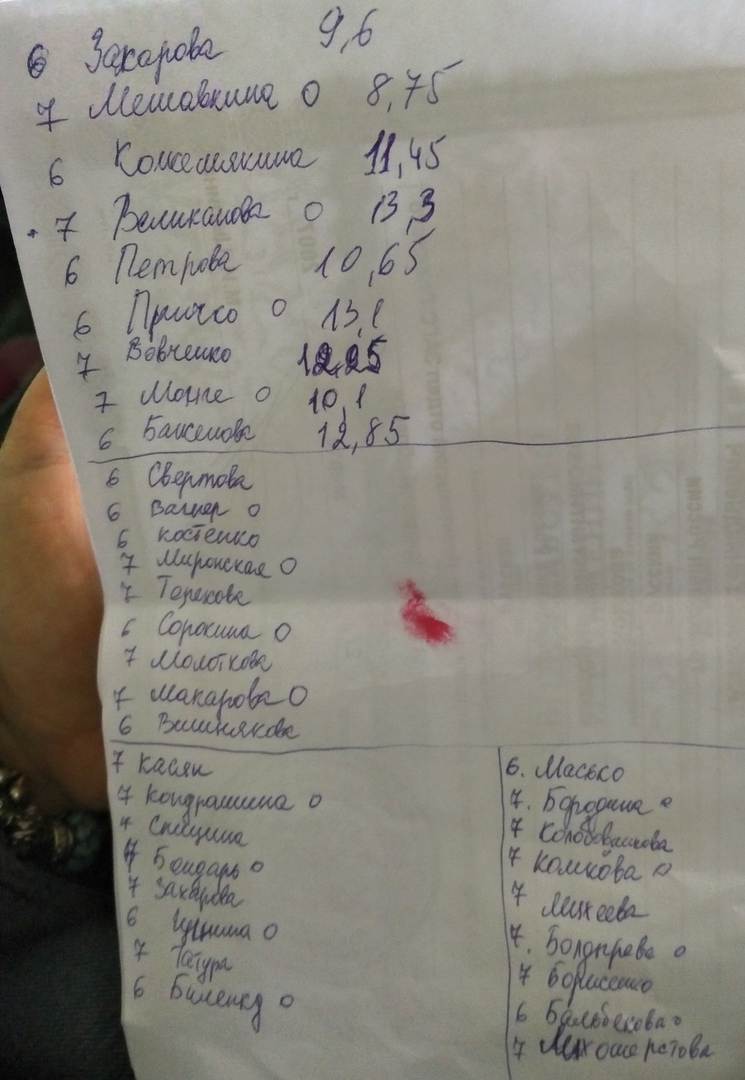 6 Захарова 9,6
7 Мешавкина о 8,75
6 Кожемякина 11,45
7 Великанова о 13,3
6 Петрова 10,65
6 Причко о 13,1
7 Вовченко 12,25
7 Монге о 10,1
6 Баженова 12,85
6 Свертова
6 Вагнер о
6 Костенко
7 Миронская о
7 Терехова
6 Сорокина о
7 Молоткова
7 Макарова о
6 Вишнякова
7 Касян
7 Кондрашина о
7 Спицина
7 Бондарь о
7 Захарова
6 о
7 Татура
6 Биленко о
6. Масько
7. Бородина о
7 Колобовникова
7 Комкова о
7 Михеева
7. Болдырева о
7 Борисенко
6 Бальбекова о
7 Мухошерстова